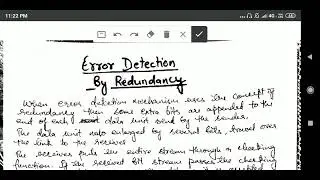 11:22 PM
Error Detection
By Redundancy
When error detection mechanism uses the concept of
redundancy then some extra bits are appended to the
end of each data unit send by the sender.
The data unit now enlarged by several bits, travel over
the link to the receiver
The receiver puts the entire stream through a checking
function. If the received bit stream passes the checking